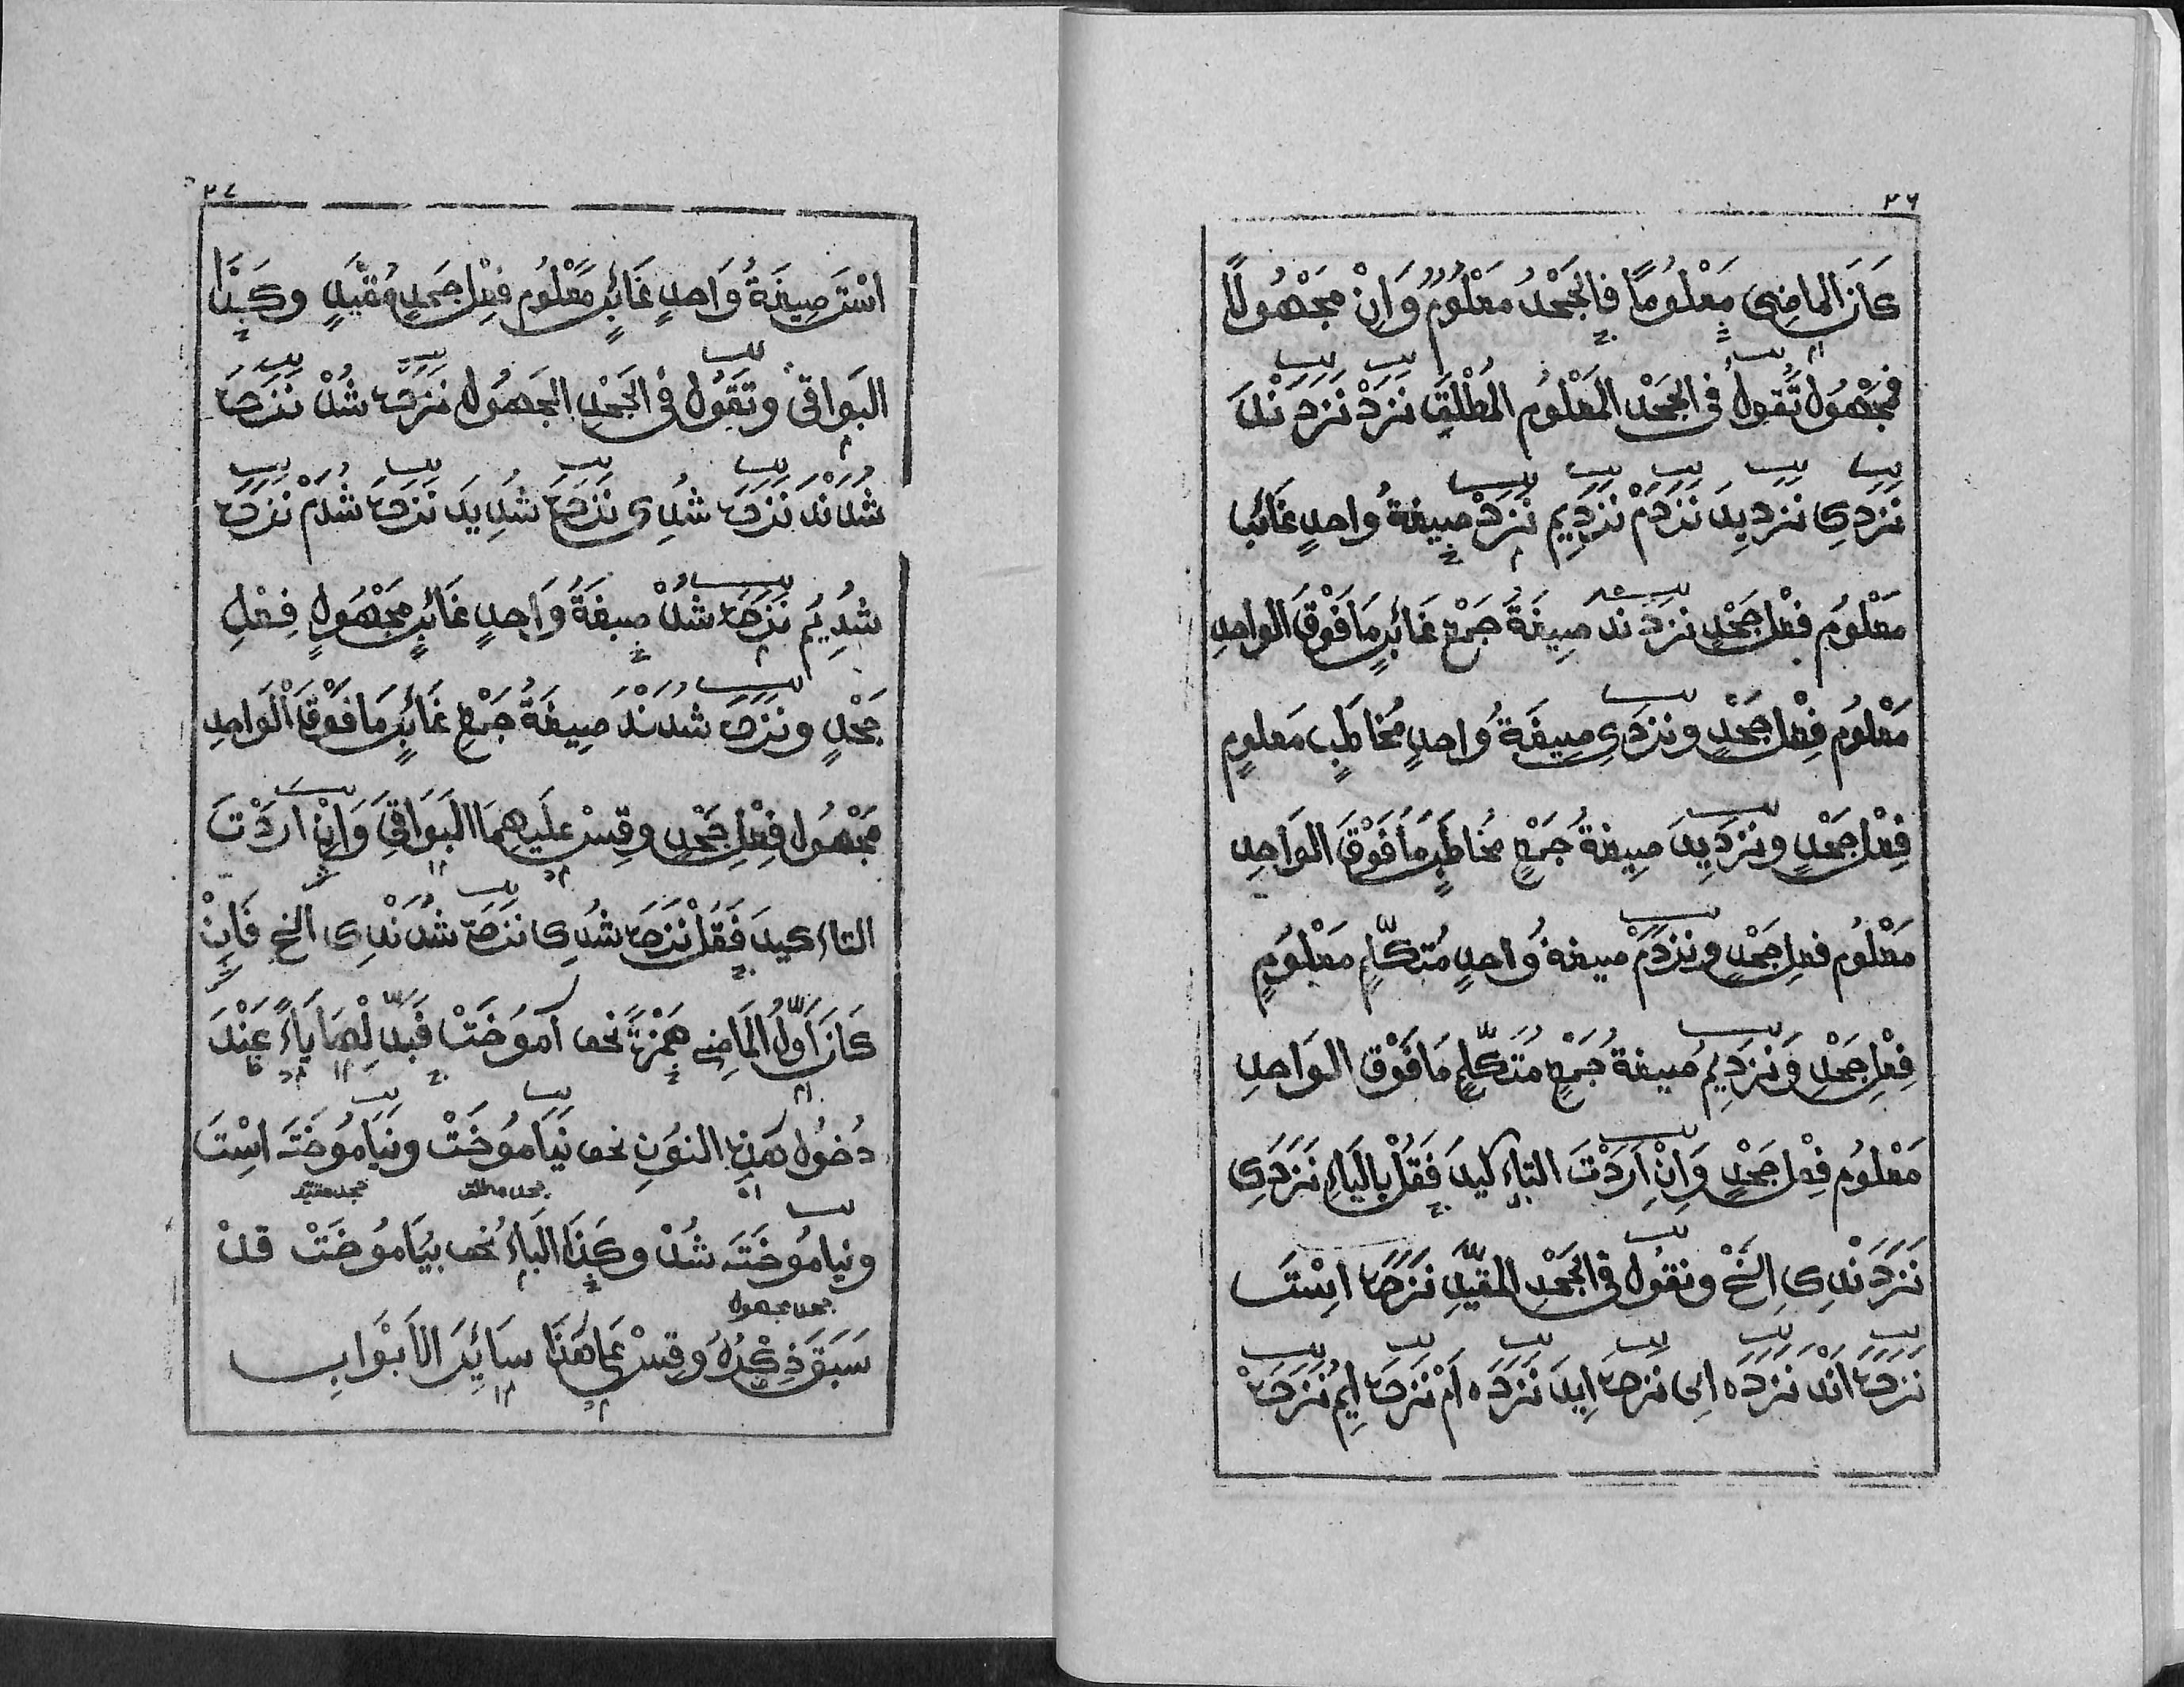 ٢٦
كَانَ الماضِى مَعْلُومًا فالجَحْدُ مَعْلُومٌ وَاِنْ مَجْهُولًا
فمَجْهُول تَقُولُ فى الجَحْدِ المَعْلُومِ المُطْلَقِ نَزَدْ نَزَدَنْدَ
نَزَدِى نَزَدِيدَ نَزَدَمْ نَزَدِيم نَزَدْ صِيغةُ واحدٍ غَائبٍ
مَعْلُومِ فعْل جَحْدٍ نَزَدَنْد صِيغَةُ جَمْعِ غَائبٍ مَا فَوْقَ الواحدِ
مَعْلُومِ فِعْل جَحْدٍ ونَزَدِى صِيغَةُ وَاحدٍ مُخَاطَبٍ مَعلومٍ
فِعْل جَحْدٍ ونَزَدِيدَ صِيغةُ جَمْعِ مُخاطَبٍ مَا فَوْقَ الوَاحِدِ
مَعْلُومِ فعلِ جَحْدٍ ونَزَدَمْ صيغةُ وَاحدٍ مُتَكَلِّمٍ مَعْلُومٍ
فِعْلِ جَحْدٍ وَنَزَدِيم صيغةُ جَمْعِ مُتَكَلِّمٍ مَا فَوْقَ الوَاحدِ
مَعْلُومِ فِعْل جَحْدٍ وَاِنْ اَرَدْتَ التاءكيدَ فَقُلْ بِاليَاءِ نَزَدِى
نَزَدَنْدِى الخْ وتقُول فى الجَحْدِ المقيَّدِ نَزَدَه اسْتَ
نَزَدَه اَنْد نَزَدَه اِى نَزَدَه اِيدَ نَزَدَه اَمْ نَزَدَه اِيم نَزَدَهْ
٢٧
اسْتَ صِيغَةُ وَاحدٍ غَائبٍ مَعْلُومِ فِعْل جَحدٍ مُقيَّدٍ وكَذَا
البَواقى وتَقُول فى الجَحْدِ المَجهُولِ نَزَدَه شُدْ نَزَدَه
شُدَنْدَ نَزَدَه شُدِى نَزَدَه شُدِيدَ نَزَدَه شُدَمْ نَزَدَه
شُدِيم نَزَدَه شُدْ صيغَةُ وَاحِدٍ غَائبٍ مَجْهُولٍ فِعْلِ
جَحْدٍ ونَزَدَه شُدَنْدَ صِيغَةُ جَمْعِ غَائبٍ مَا فَوْقَ الْوَاحِدِ
مَجْهُول فِعْلِ جَحْدٍ وقِسْ عليهما البَوَاقِى وَاِنْ اَرَدْتَ
التاءكيدَ فَقُلْ نَزَدَه شُدِى نَزَدَه شُدَنْدِى الخ فَاِنْ
كَانَ اَوَّلُ المَاضِى هَمْزَةً نحو آموُخَتْ فَبَدِّلْهَا يَاءً عِنْدَ
دُخُول هَذِهِ النّونِ نحو نَيَاموُخَتْ ونَيَاموُخْتَه اسْتَ
جحد مطلق جحد مقيد
ونياموُخْتَه شُدْ وكَذَا البَاءُ نُحو بِيَاموُخَتْ قدْ
جحد مجهول
سَبَقَ ذِكْرُهُ وقِسْ عَلَى هَذَا سَائِرَ الاَبْوَابِ